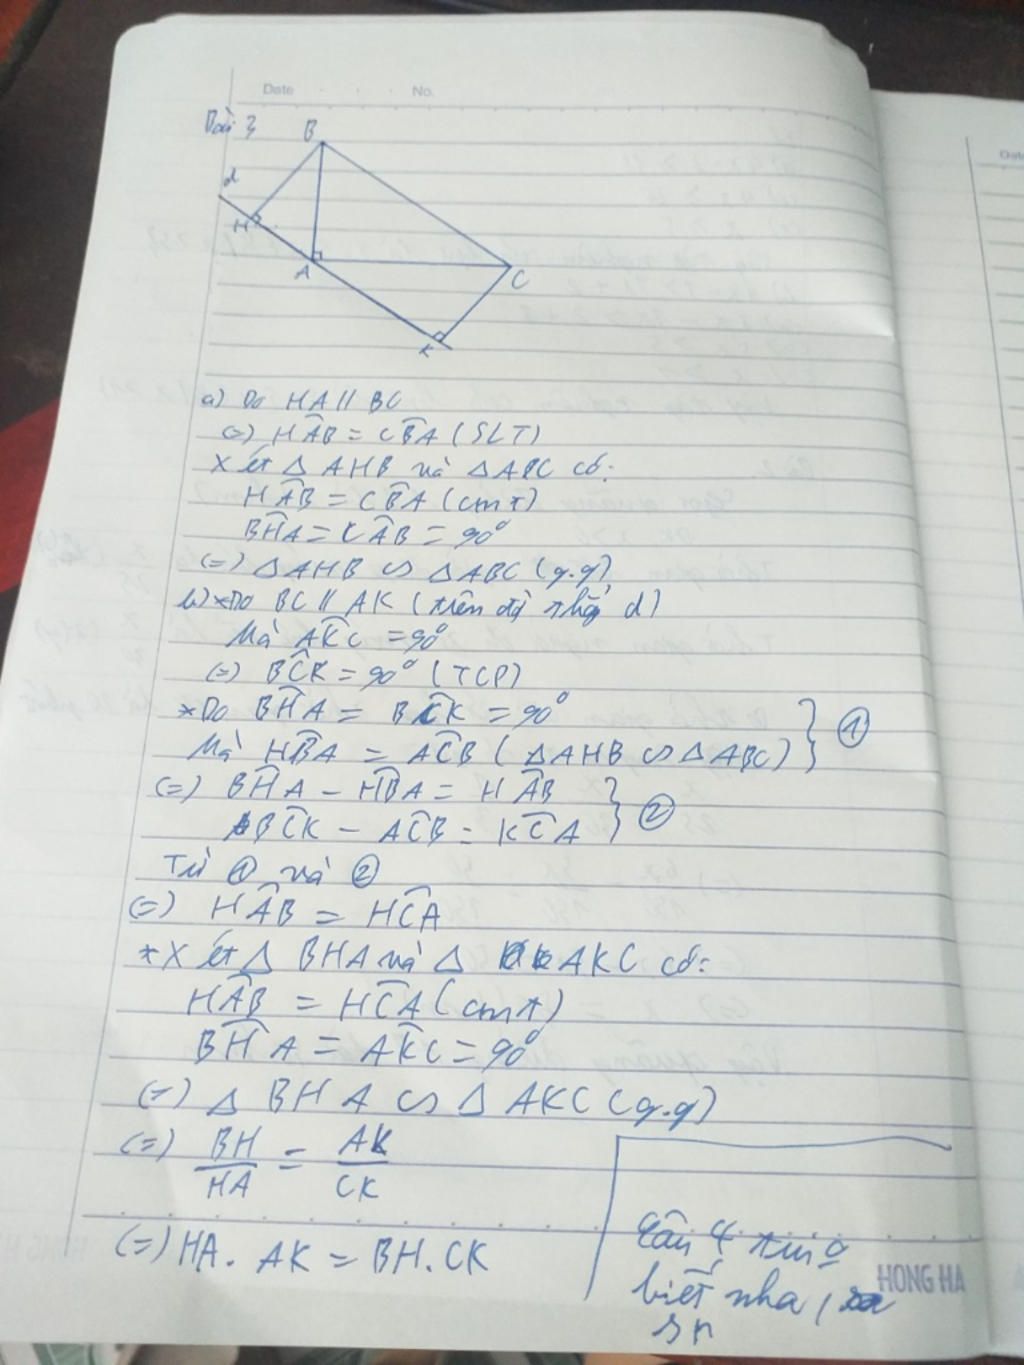 Date No.
Bài 3
B
d
H
A
C
K
a) Do HA // BC
(=) HÂB = CB̂A (SLT)
Xét △ AHB và △ ABC có:
HÂB = CB̂A (cmt)
BĤA = CÂB = 90°
(=) △AHB ∽ △ABC (g.g)
b) * Do BC // AK (trên đg thẳng d)
Mà AK̂C = 90°
(=) BĈK = 90° (TCP)
* Do BĤA = BĈK = 90°
Mà HB̂A = AĈB (△AHB ∽ △ABC) } ①
(=) BĤA - HB̂A = HÂB
BĈK - AĈB = KĈA } ②
Từ ① và ②
(=) HÂB = HĈA
* Xét △ BHA và △ AKC có:
HÂB = HĈA (cmt)
BĤA = AK̂C = 90°
(=) △ BHA ∽ △ AKC (g.g)
(=) BH/HA = AK/CK
(=) HA. AK = BH. CK
Câu 4
biết nha,
HONG HA